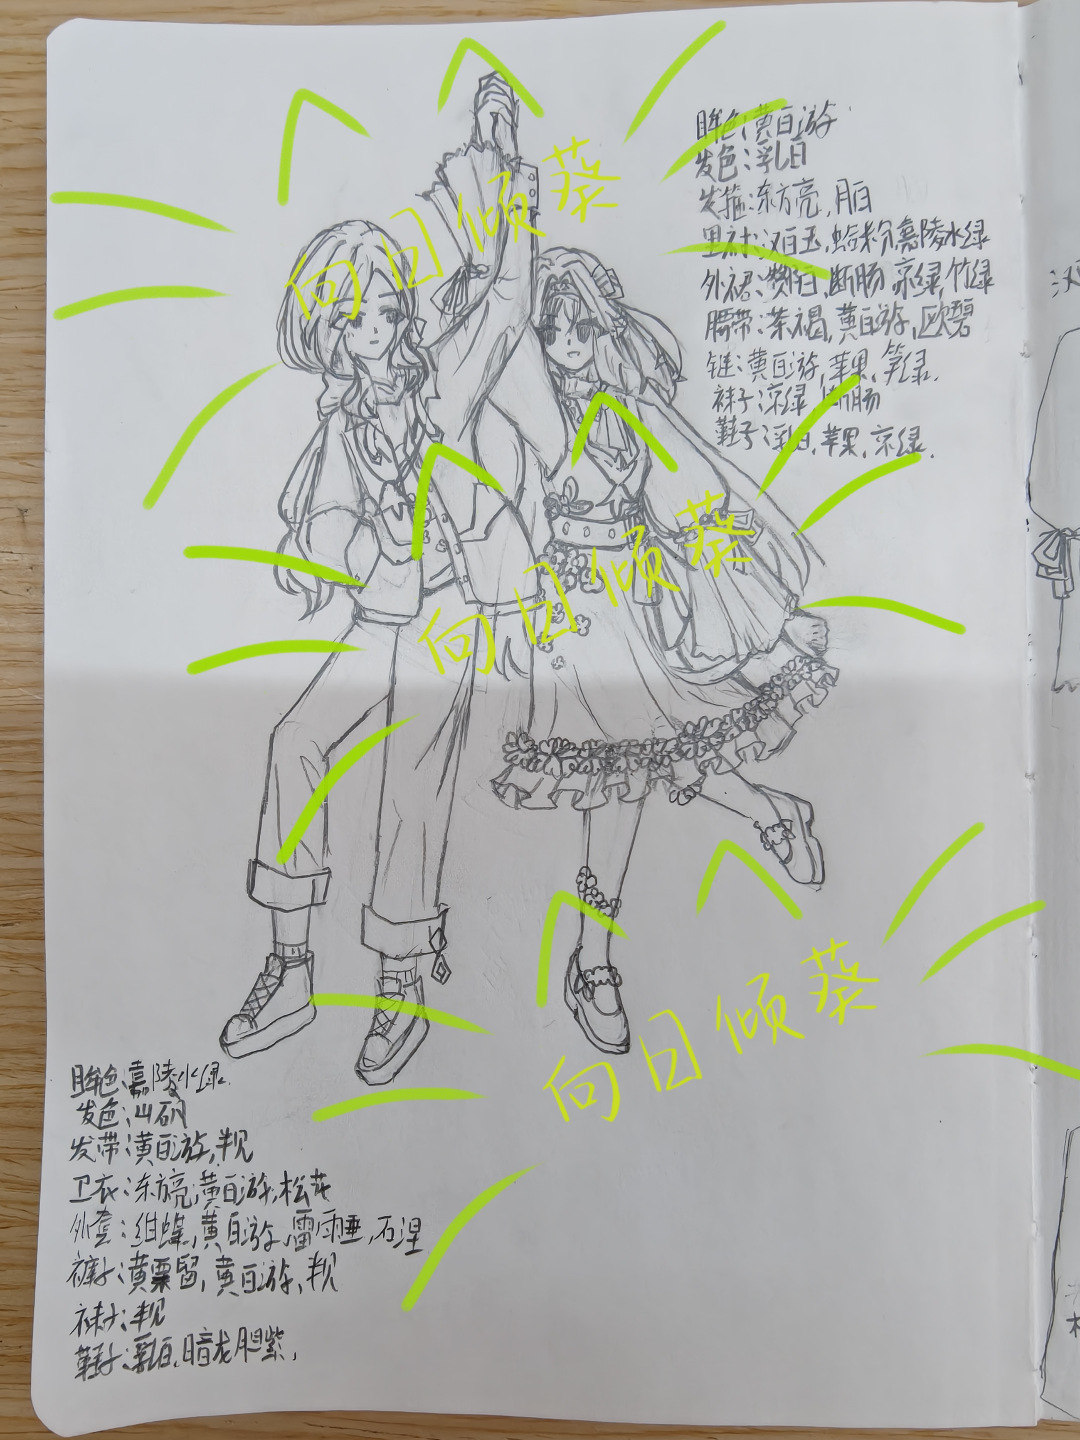 眸色:黄白游
发色:乳白
发箍:东方亮,月白
里衬:汉白玉,蛤粉,嘉陵水绿
外裙:断肠,京绿,竹绿
腰带:茶褐,黄白游,欧碧
链:黄白游,苹果,笋绿.
袜子:京绿,断肠
鞋子:乳白,苹果,京绿.
向日倾葵
向日倾葵
向日倾葵
眸色:嘉陵水绿.
发色:山矾
发带:黄白游,
卫衣:东方亮,黄白游,松花
外套:绀蝶,黄白游,雷雨垂,石涅
裤子:黄栗留,黄白游,
袜子:
鞋子:乳白,暗龙胆紫,